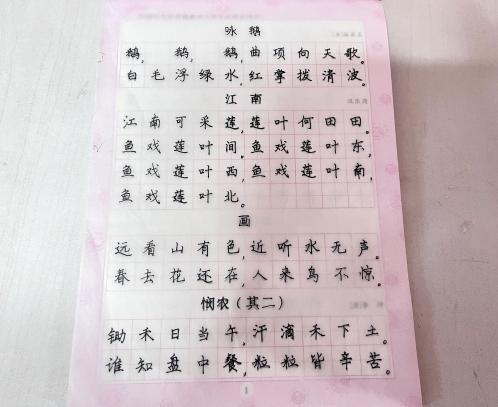 咏鹅
鹅,鹅,鹅,曲项向天歌。
白毛浮绿水,红掌拨清波。
江南
汉乐府
江南可采莲,莲叶何田田。
鱼戏莲叶间。鱼戏莲叶东,
鱼戏莲叶西,鱼戏莲叶南,
鱼戏莲叶北。
画
远看山有色,近听水无声。
春去花还在,人来鸟不惊。
悯农(其二)
锄禾日当午,汗滴禾下土。
谁知盘中餐,粒粒皆辛苦。
1